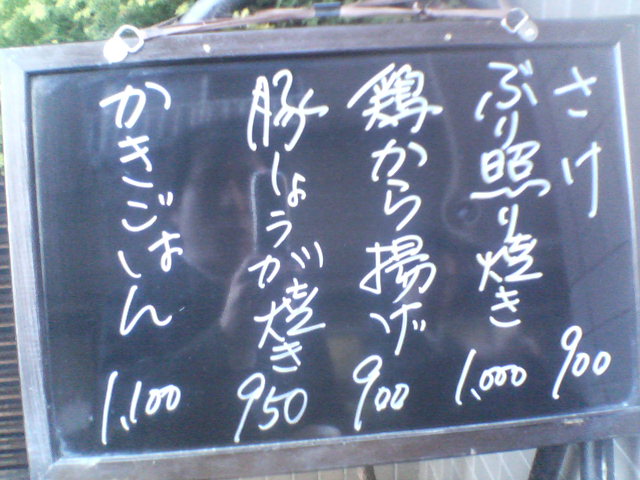 さけ 900
ぶり照り焼き 1,000
鶏から揚げ 900
豚しょうが焼き 950
かきごはん 1,100